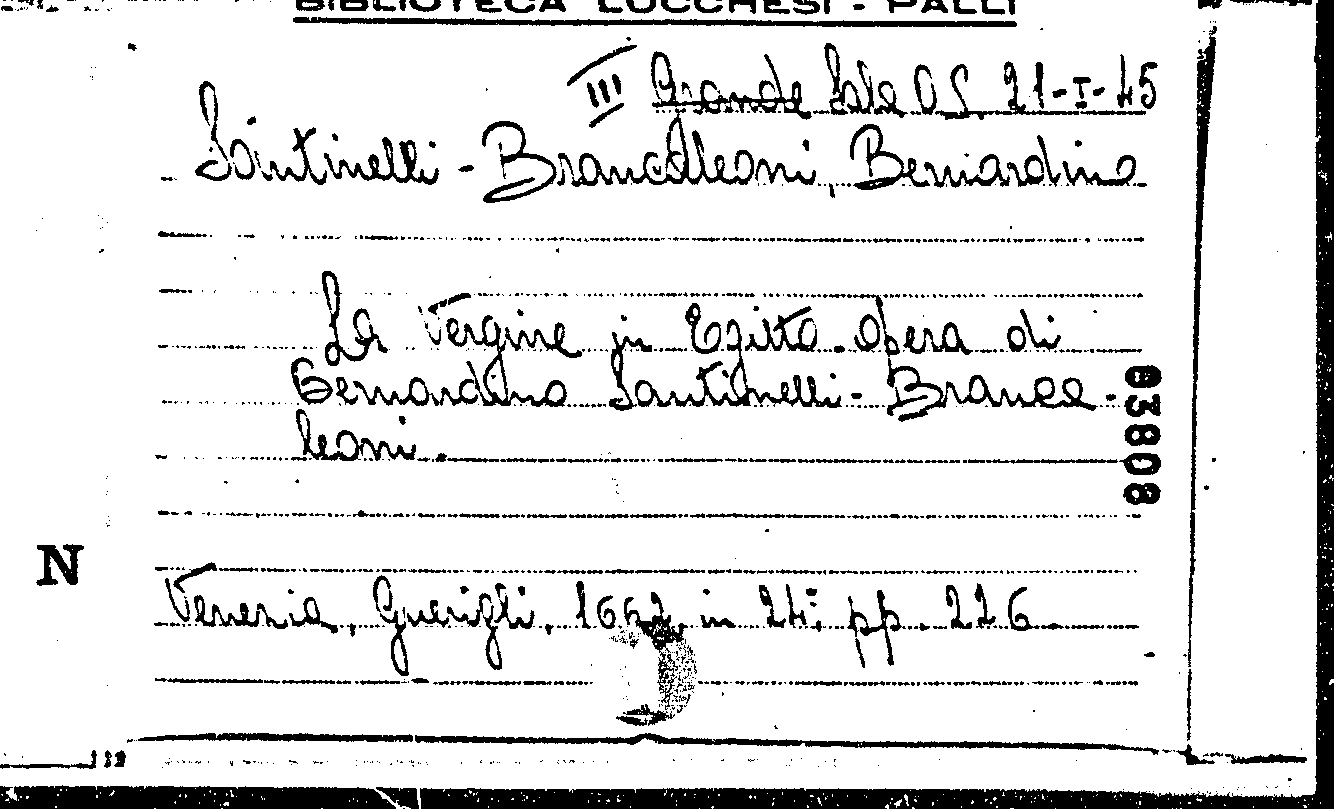 BIBLIOTECA LUCCHESI - PALLI
III Grande Sala O S. 21-I-45
Santinelli - Brancaleoni, Bernardino
La Vergine in Egitto. Opera di
Bernardino Santinelli - Branca-
leoni.
03808
N
Venezia, Guerigli, 1662, in 24°, pp. 226.
112